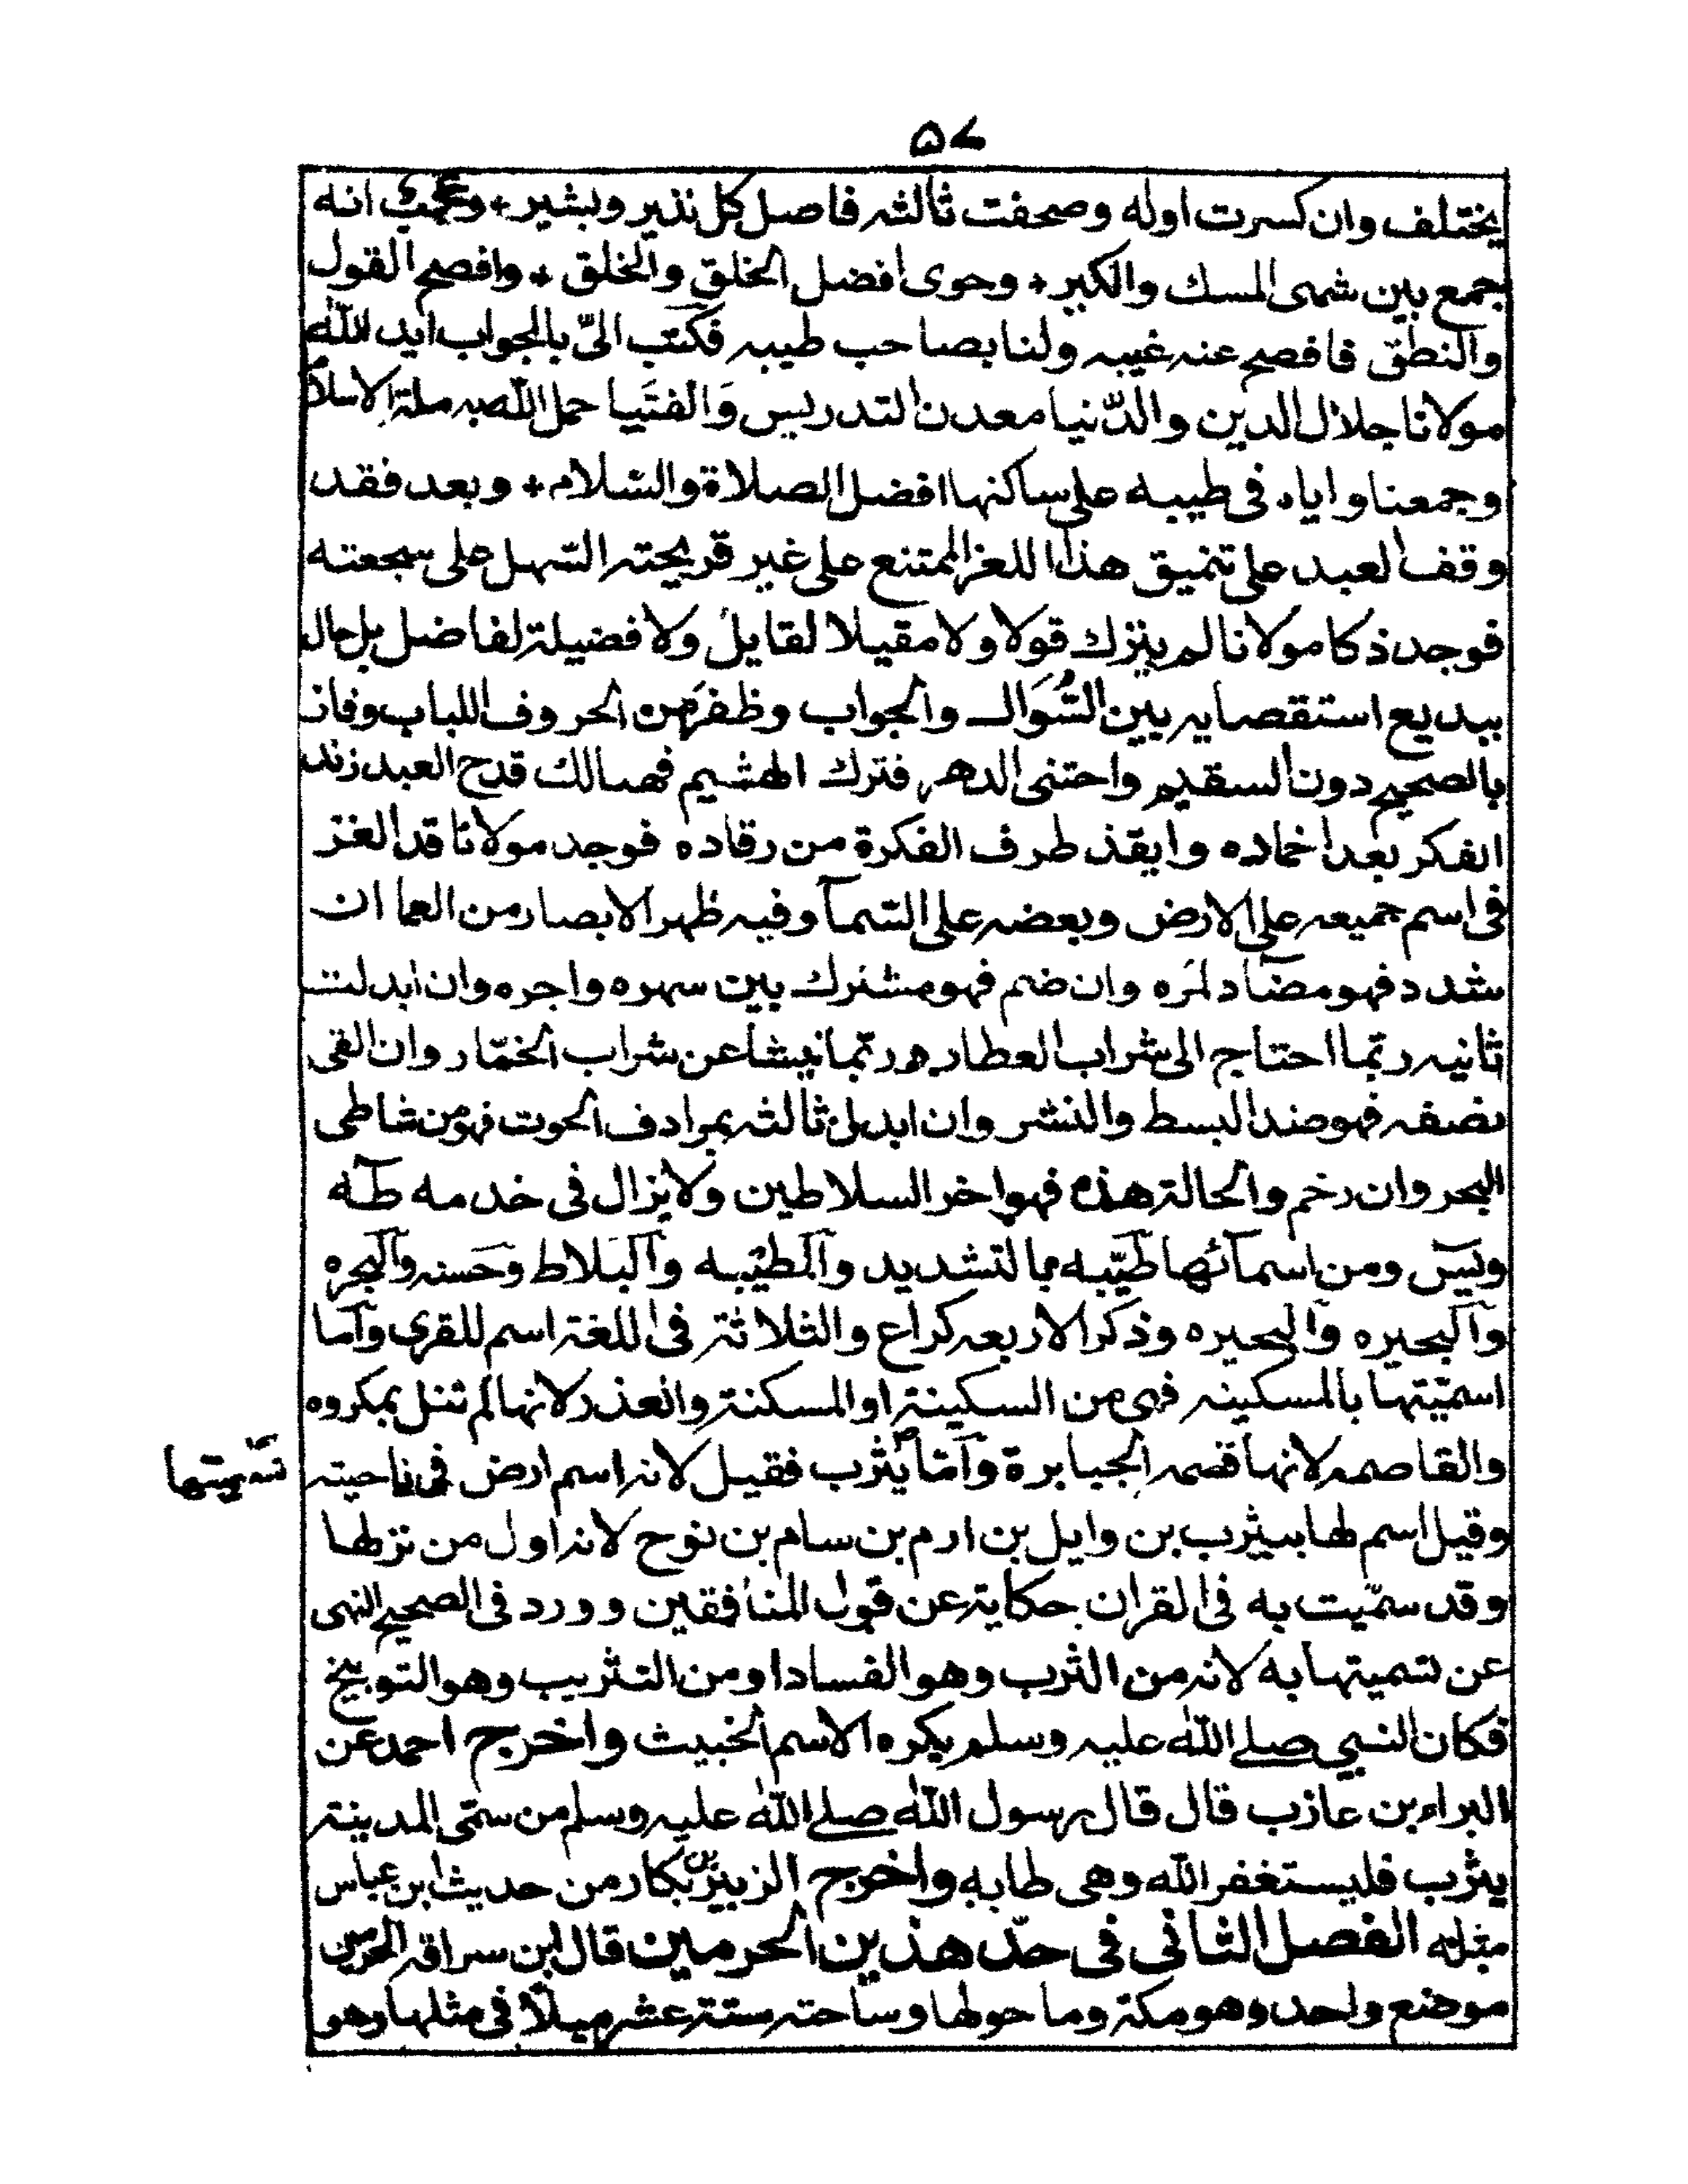 ۵۷
يختلف وان كسرت اوله وصحفت ثالثه فاصل كل نذير وبشير + وعجبت انه
جمع بين شمى المسك والكبر + وحوى افضل الخلق والخلق + وافصح القول
والنطق فافصح عنه غيبه ولنا بصاحب طيبه فكتب الىّ بالجواب ايد الله
مولانا جلال الدين والدّنيا معدن التدريس وَالفتَيا حمل الله به ملة الاسلام
وجمعنا واياه فى طيبه على ساكنها افضل الصلاة والسّلام + وبعد فقد
وقف العبد على تنميق هذا اللغز الممتنع على غير قريحته السّهل على سجعته
فوجد ذكا مولانا لم يترك قولا ولا مقيلا لقايل ولا فضيلة لفاضل بل حال
ببديع استقصايه بين السُّوَال والجواب وظفر من الحروف اللباب وفاز
بالصحيح دون السقيم واجتنى الدهر فترك الهشيم فهنالك قدح العبد زند
الفكر بعد اخماده وايقذ طرف الفكرة من رقاده فوجد مولانا قد الغز
فى اسم جميعه على الارض وبعضه على السّمآ وفيه ظهر الابصار من العما ان
شدد فهو مضآد لمَره وان ضم فهو مشترك بين سهره واجره وان ابدلت
ثانيه ربّما احتاج الى شراب العطار وربّما نيشا عن شراب الخمّار وان القى
نصفه فهو ضد البسط والنشر وان ابدل ثالثه بمرادف الحوت فهو من شاطى
البحر وان رخم والحالة هذه فهو اخر السلاطين ولا يزال فى خدمه طٓه
ويسٓ ومن اسمآئها طَيّبه بالتشديد وآلمطيّبه وآلبَلاط وحَسنه وآلبجره
وآلبحيره وآلبحيره وذكر الاربعه كراع والثلاثة فى اللغة اسم للقرى وآما
اسميّتها بالمسكينه فهى من السكينة او المسكنة والعذر لانها لم تنل بمكروه
والقاصمه لانها قصمه الجبابرة وآمّا يثرب فقيل لانه اسم ارض فى ناحيته
تسميتها
وقيل اسم لها بيثرب بن وايل بن ارم بن سام بن نوح لانه اول من نزلها
وقد سمّيت به فى القران حكاية عن قول المنافقين وورد فى الصحيح النهى
عن تسميتها به لانه من الثرب وهو الفساد او من التثريب وهو التوبيخ
فكان النبي صلے الله عليه وسلم يكره الاسم الخبيث واخرج احمد عن
البراء بن عازب قال قال رسول الله صلے الله عليه وسلم من سمّى المدينة
يثرب فليستغفر الله وهى طابه واخرج الزبير بن بكار من حديث ابن عباس
مثله الفصل الثانى فى حدّ هذين الحرمين قال ابن سراقه الحرمين
موضع واحد وهو مكة وما حولها وساحته ستة عشر ميلاً فى مثلها وهو